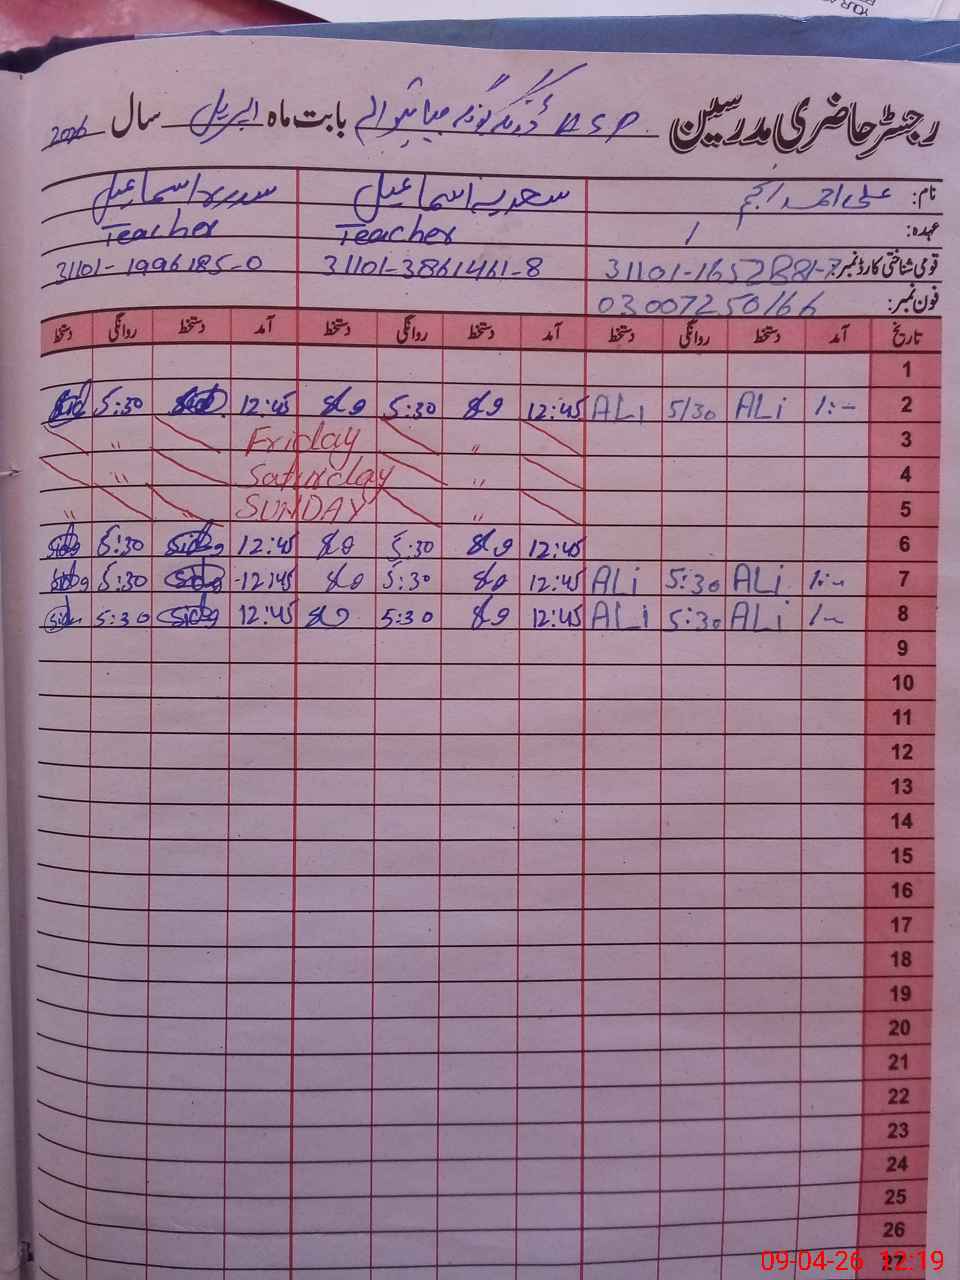 رجسٹر حاضری مدرسین D S P گوٹھ میانوالہ بابت ماہ اپریل سال 2026
نام: علی احمد انجم سعدیہ اسماعیل سدرہ اسماعیل
عہدہ: 1 Teacher Teacher
قومی شناختی کارڈ نمبر: 31101-1652881-7 31101-3861461-8 31101-1996185-0
فون نمبر: 03007250166
تاریخ آمد دستخط روانگی دستخط آمد دستخط روانگی دستخط آمد دستخط روانگی دستخط
1
2 1:- ALi 5/30 ALi 12:45 5:30 12:45 5:30 Sid
3 Friday
4 Saturday
5 SUNDAY
6 12:45 5:30 12:45 5:30
7 1:- ALi 5:30 ALi 12:45 5:30 12:45 5:30
8 1:- ALi 5:30 ALi 12:45 5:30 12:45 5:30
9
10
11
12
13
14
15
16
17
18
19
20
21
22
23
24
25
26
27
09-04-26 12:19